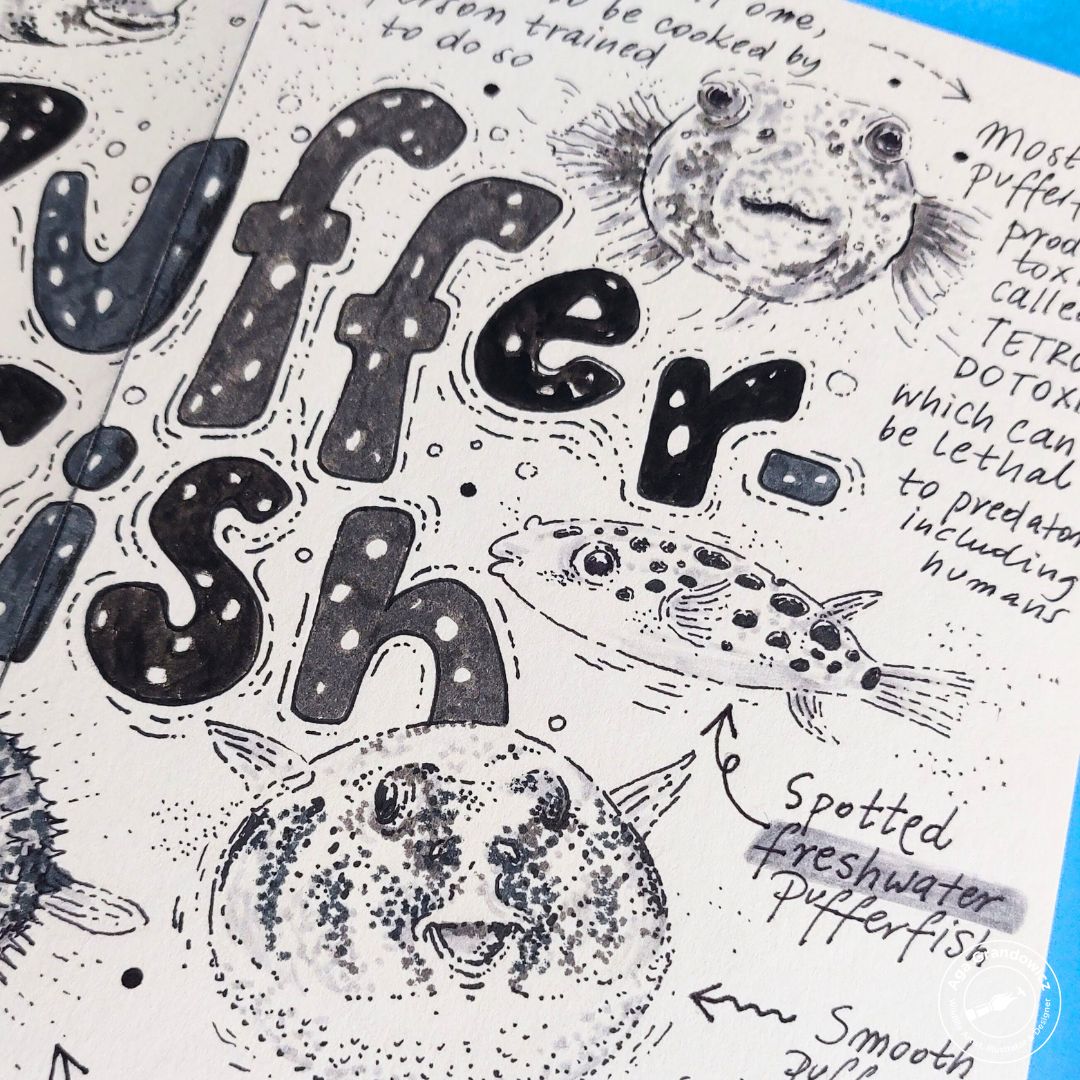 one,
be cooked by
person trained
to do so
Puffer-
fish
most
pufferf
prod
tox
called
TETRO
DOTOXI
which can
be lethal
to predator
including
humans
Spotted
freshwater
pufferfish
Smooth
puff